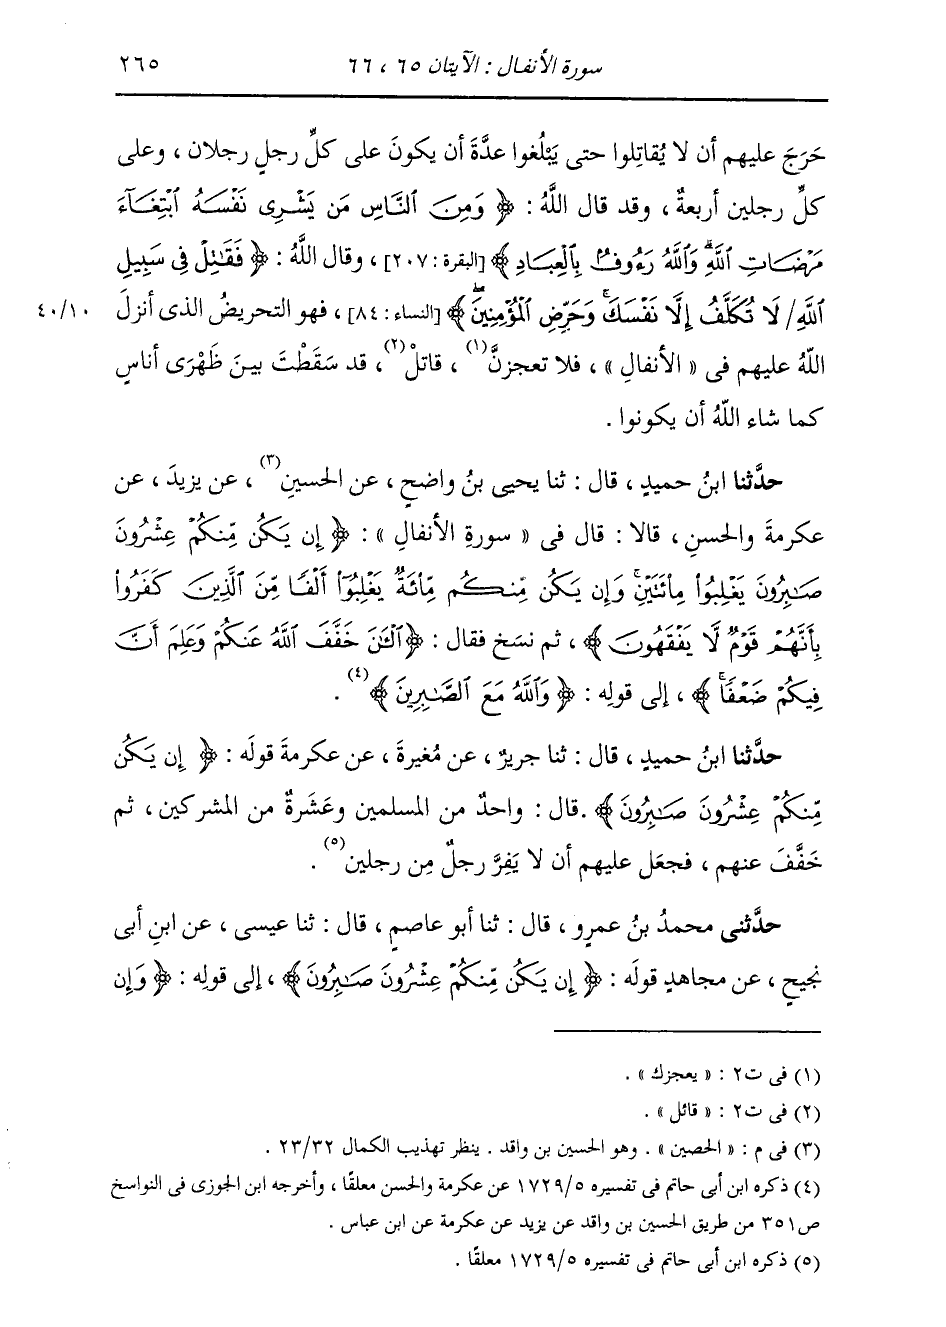 سورة الأنفال : الآيتان ٦٥ ، ٦٦ ٢٦٥
حَرَجَ عليهم أن لا يُقاتِلوا حتى يَبْلُغوا عدَّةَ أن يكونَ على كلِّ رجلٍ رجلان ، وعلى
كلِّ رجلين أربعةٌ ، وقد قال اللَّهُ : ﴿ وَمِنَ ٱلنَّاسِ مَن يَشْرِى نَفْسَهُ ٱبْتِغَآءَ
مَرْضَاتِ ٱللَّهِۗ وَٱللَّهُ رَءُوفٌۢ بِٱلْعِبَادِ ﴾ [البقرة : ٢٠٧] ، وقال اللَّهُ : ﴿ فَقَٰتِلْ فِى سَبِيلِ
ٱللَّهِ/ لَا تُكَلَّفُ إِلَّا نَفْسَكَۚ وَحَرِّضِ ٱلْمُؤْمِنِينَۖ ﴾ [النساء : ٨٤] ، فهو التحريضُ الذى أنزلَ ٤٠/١٠
اللَّهُ عليهم فى « الأنفالِ » ، فلا تعجزنَّ(١) ، قاتلْ(٢) ، قد سَقَطْتَ بينَ ظَهْرَى أناسٍ
كما شاء اللَّهُ أن يكونوا .
حدَّثنا ابنُ حميدٍ ، قال : ثنا يحيى بنُ واضحٍ ، عن الحسينِ(٣) ، عن يزيدَ ، عن
عكرمةَ والحسنِ ، قالا : قال فى « سورةِ الأنفالِ » : ﴿ إِن يَكُن مِّنكُمْ عِشْرُونَ
صَٰبِرُونَ يَغْلِبُوا۟ مِا۟ئَتَيْنِۚ وَإِن يَكُن مِّنكُم مِّا۟ئَةٌ يَغْلِبُوٓا۟ أَلْفًا مِّنَ ٱلَّذِينَ كَفَرُوا۟
بِأَنَّهُمْ قَوْمٌ لَّا يَفْقَهُونَ ﴾ ، ثم نسَخ فقال : ﴿ ٱلْـَٰٔنَ خَفَّفَ ٱللَّهُ عَنكُمْ وَعَلِمَ أَنَّ
فِيكُمْ ضَعْفًاۚ ﴾ ، إلى قولِه : ﴿ وَٱللَّهُ مَعَ ٱلصَّٰبِرِينَ ﴾(٤) .
حدَّثنا ابنُ حميدٍ ، قال : ثنا جريرٌ ، عن مُغيرةَ ، عن عكرمةَ قولَه : ﴿ إِن يَكُن
مِّنكُمْ عِشْرُونَ صَٰبِرُونَ ﴾ .قال : واحدٌ من المسلمين وعَشَرةٌ من المشركين ، ثم
خَفَّفَ عنهم ، فجعَل عليهم أن لا يَفِرَّ رجلٌ مِن رجلين(٥) .
حدَّثنى محمدُ بنُ عمرٍو ، قال : ثنا أبو عاصمٍ ، قال : ثنا عيسى ، عن ابنِ أبى
نجيحٍ ، عن مجاهدٍ قولَه : ﴿ إِن يَكُن مِّنكُمْ عِشْرُونَ صَٰبِرُونَ ﴾ ، إلى قولِه : ﴿ وَإِن
(١) فى ت٢ : « يعجزك » .
(٢) فى ت٢ : « قائل » .
(٣) فى م : « الحصين » . وهو الحسين بن واقد . ينظر تهذيب الكمال ٢٣/٣٢ .
(٤) ذكره ابن أبى حاتم فى تفسيره ١٧٢٩/٥ عن عكرمة والحسن معلقًا ، وأخرجه ابن الجوزى فى النواسخ
ص٣٥١ من طريق الحسين بن واقد عن يزيد عن عكرمة عن ابن عباس .
(٥) ذكره ابن أبى حاتم فى تفسيره ١٧٢٩/٥ معلقًا .